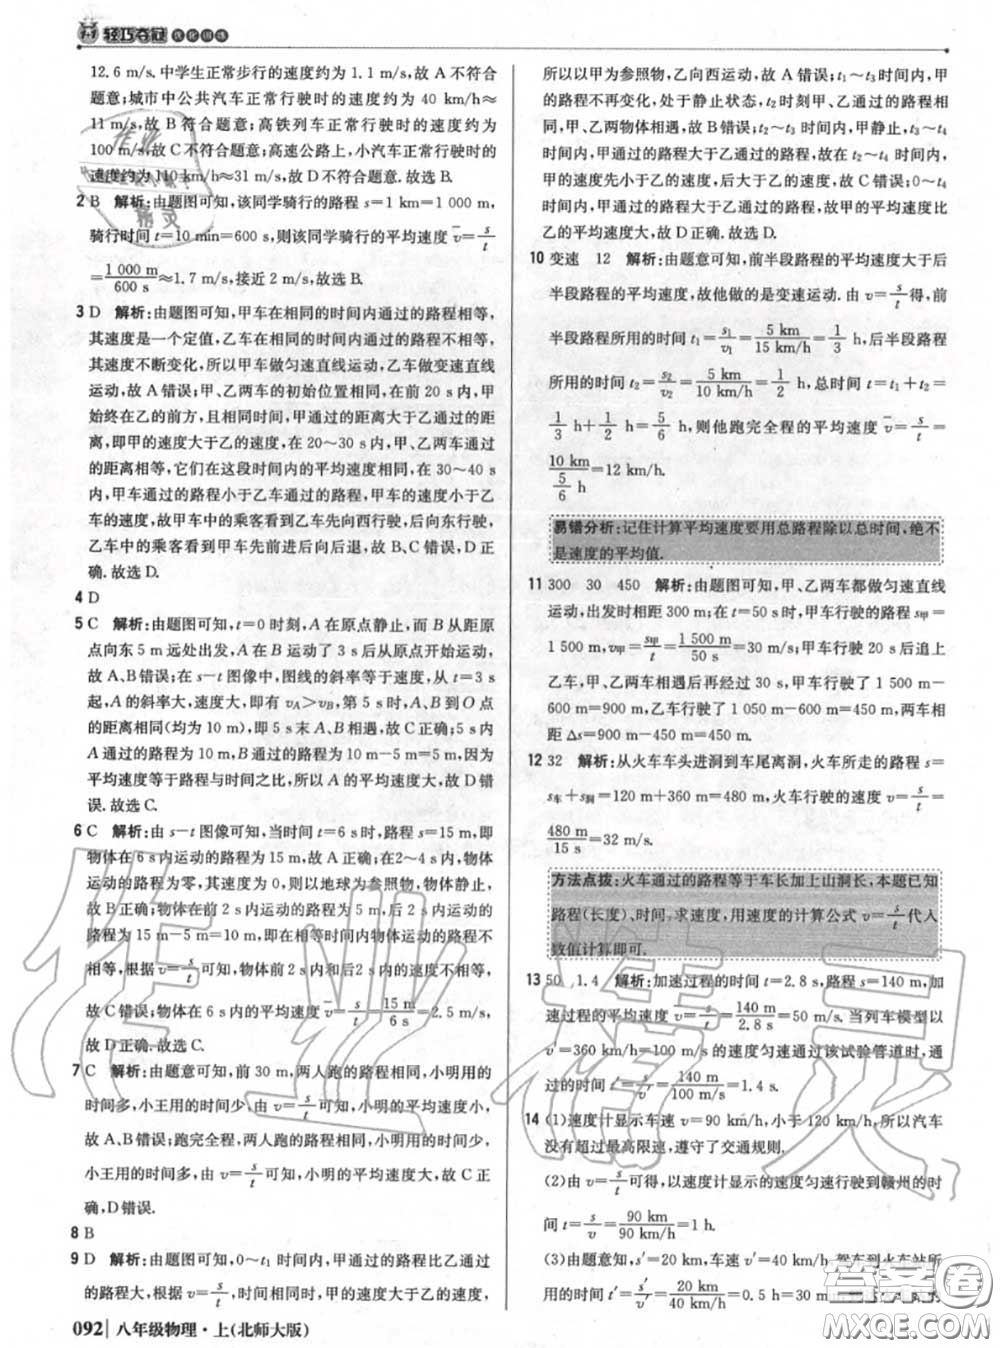 1+1 轻巧夺冠 优化训练
12.6 m/s. 中学生正常步行的速度约为 1.1 m/s, 故 A 不符合
题意; 城市中公共汽车正常行驶时的速度约为 40 km/h≈
11 m/s, 故 B 符合题意; 高铁列车正常行驶时的速度约为
100 m/s, 故 C 不符合题意; 高速公路上, 小汽车正常行驶时
的速度约为 110 km/h≈31 m/s, 故 D 不符合题意. 故选 B.
2 B 解析: 由题图可知, 该同学骑行的路程 s=1 km=1 000 m,
骑行时间 t=10 min=600 s, 则该同学骑行的平均速度 v̄=s/t
=1 000 m/600 s≈1.7 m/s, 接近 2 m/s. 故选 B.
3 D 解析: 由题图可知, 甲车在相同的时间内通过的路程相等,
其速度是一个定值, 乙车在相同的时间内通过的路程不相等,
其速度不断变化, 所以甲车做匀速直线运动, 乙车做变速直线
运动, 故 A 错误; 甲、乙两车的初始位置相同, 在 10 s 内, 甲
始终在乙的前方, 且相同时间, 甲通过的距离大于乙的距离,
即甲的速度大于乙的速度, 在 20～30 s 内, 甲、乙两车通过
的距离相等, 在这个时间内的平均速度相同, 在 30～40 s
内, 甲车行驶的路程小于乙车行驶的路程, 即甲的速度小于乙
车的速度, 故甲车中的乘客看到乙车先向西行驶, 再向东行驶,
乙车中的乘客看到甲车先前进后后退, 故 B、C 错误, D 正
确. 故选 D.
4 D
5 C 解析: 由题图可知, t=0 时刻, A 在原点静止, 而 B 从距原
点向东 5 m 远处出发; A 运动了 3 s 后从原点开始运动,
故 A、B 错误; 在 s-t 图像中, 图线的斜率等于速度, 从 t=3 s
起, A 的斜率大, 速度大, 即有 vA>vB, 第 5 s 时, A、B 到 O 点
的距离相同(均为 10 m), 即 5 s 末两者相遇, 故 C 正确; 5 s 内
A 通过的路程为 10 m, B 通过的路程为 10 m-5 m=5 m, 因为
平均速度等于路程与时间之比, 所以 A 的平均速度大, 故 D 错
误. 故选 C.
6 C 解析: 由 s-t 图像可知, 当时间 t=6 s 时, 路程 s=15 m, 即
物体在 6 s 内运动的路程为 15 m, 故 A 错误; 在 2～4 s 内, 物体
运动的路程为零, 速度为 0, 所以以地球为参照物, 物体静止,
故 B 错误; 物体在前 2 s 内运动的路程为 10 m, 在后 2 s 内运动的
路程为 15 m-5 m=10 m, 在相等时间内物体运动的路程不
相等, 根据 v=s/t 可知, 物体前 2 s 内与后 2 s 内的速度不相等,
故 C 错误; 物体在 6 s 内的平均速度 v̄=s/t=15 m/6 s=2.5 m/s,
故 D 正确. 故选 C.
7 C 解析: 由题意可知, 前 50 m, 两人跑的路程相等, 小明用的
时间多, 小王用的时间少, 由 v=s/t 可知, 小明的平均速度小,
故 A、B 错误; 跑完全程, 两人跑的路程相等, 小明用的时间少,
小王用的时间多, 由 v=s/t 可知, 小明的平均速度大, 故 C 正
确, D 错误.
8 B
9 D 解析: 由题图可知, 0～t₁ 时间内, 甲通过的路程比乙通过
的路程多, 根据 v=s/t 可知, 甲运动的速度大于乙运动的速度,
所以以甲为参照物, 乙向西运动, 故 A 错误; t₁～t₃ 时间内, 甲
的路程不再变化, 处于静止状态, t₂ 时刻甲、乙通过的路程相
同, 即甲、乙两物体相遇, 故 B 错误; t₂～t₃ 时间内, 甲静止, t₃～
t₄ 时间内, 甲通过的路程大于乙通过的路程, 根据 v=s/t 可知, 甲
的速度先小于乙的速度, 后大于乙的速度, 故 C 错误; 0～t₄
时间内, 甲通过的路程大于乙通过的路程, 故甲的平均速度比
乙的平均速度大, 故 D 正确. 故选 D.
10 变速 12 解析: 由题意可知, 前半段路程的平均速度大于后
半段路程的平均速度, 故他做的是变速运动. 由 v=s/t 得, 前
半段路程所用的时间 t₁=s₁/v₁=5 km/15 km/h=1/3 h, 后半段路程
所用的时间 t₂=s₂/v₂=5 km/10 km/h=1/2 h, 总时间 t=t₁+t₂=
1/3 h+1/2 h=5/6 h, 则他跑完全程的平均速度 v̄=s/t=
10 km/(5/6 h)=12 km/h.
易错分析: 记住计算平均速度要用总路程除以总时间, 绝不
是速度的平均值.
11 300 30 450 解析: 由题图可知, 甲、乙两车都做匀速直线
运动, 出发时相距 300 m; 在 t=50 s 时, 甲车行驶的路程 s甲=
1 500 m, v甲=s甲/t=1 500 m/50 s=30 m/s, 甲车行驶 20 s 后追上
乙车, 甲、乙两车相遇后再经过 30 s, 甲车行驶了 1 500 m
-600 m=900 m, 乙车行驶了 1 050 m-600 m=450 m, 两车
相距 Δs=900 m-450 m=450 m.
12 32 解析: 从火车车头进洞到车尾离洞, 火车所走的路程 s=
s车+s洞=120 m+360 m=480 m, 火车行驶的速度 v=s/t=
480 m/15 s=32 m/s.
方法点拨: 火车通过的路程等于车长加上山洞长, 本题已知
路程(长度)、时间, 求速度, 用速度的计算公式 v=s/t 代入
数值计算即可.
13 50 1.4 解析: 加速过程的时间 t=2.8 s, 路程 s=140 m, 加
速过程的平均速度 v=s/t=140 m/2.8 s=50 m/s. 当列车模型以
v′=360 km/h=100 m/s 的速度匀速通过该试验管道时, 通
过的时间 t′=s/v′=140 m/100 m/s=1.4 s.
14 (1)速度计显示车速 v=90 km/h, 小于 120 km/h, 所以汽车
没有超过最高限速, 遵守了交通规则.
(2)由 v=s/t 可得, 以速度计显示的速度行驶到赣州的时
间 t=s/v=90 km/90 km/h=1 h.
(3)由题意知, s′=20 km, 车速 v′=40 km/h, 驾车到火车站所
用的时间 t′=s′/v′=20 km/40 km/h=0.5 h=30 min,
092 八年级物理·上(北师大版)
作业精灵
答案圈
MXQE.COM